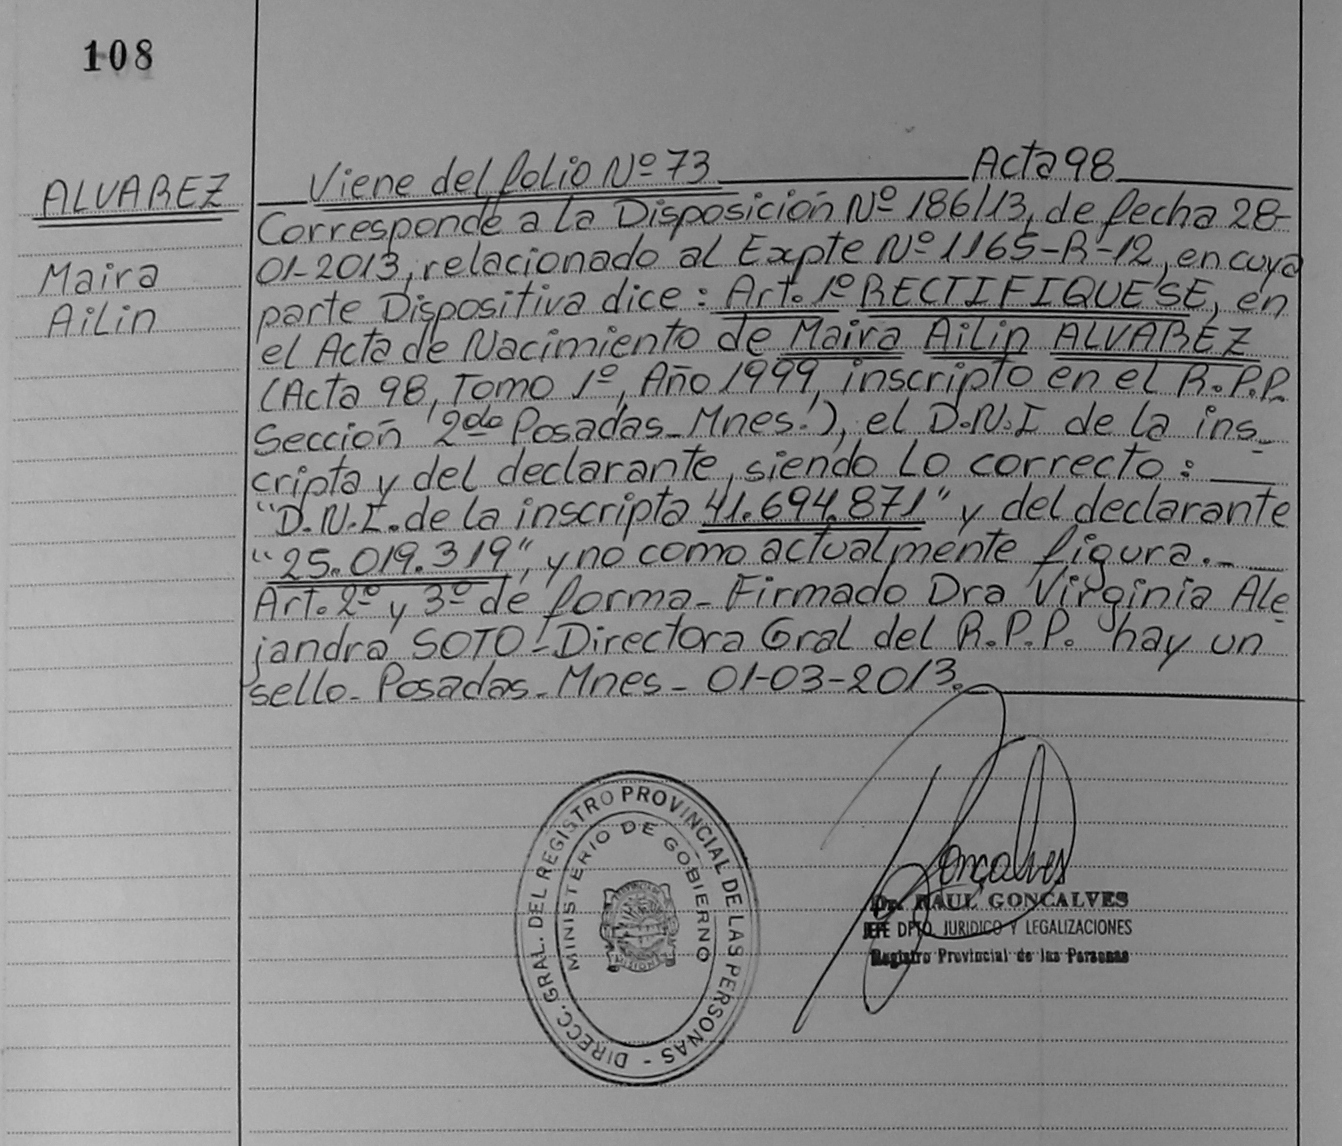 108
ALVAREZ
Maira
Ailin
Viene del folio Nº 73 Acta 98
Corresponde a la Disposición Nº 186/13, de fecha 28-
01-2013, relacionado al Expte Nº 1165-R-12, en cuya
parte Dispositiva dice: Art. 1º RECTIFIQUESE, en
el Acta de Nacimiento de Maira Ailin ALVAREZ
(Acta 98, Tomo 1º, Año 1999, inscripto en el R.P.P.
Sección 2do Posadas-Mnes.), el D.N.I de la ins-
cripta y del declarante, siendo lo correcto:
"D.N.I. de la inscripta 41.694.871" y del declarante
"25.019.319", y no como actualmente figura.-
Art. 2º y 3º de forma- Firmado Dra Virginia Ale
jandra SOTO- Directora Gral del R.P.P. hay un
sello- Posadas- Mnes- 01-03-2013.
DIRECC. GRAL. DEL REGISTRO PROVINCIAL DE LAS PERSONAS -
MINISTERIO DE GOBIERNO
MISIONES
Gonçalves
Dr. RAUL GONCALVES
JEFE DPTO. JURIDICO Y LEGALIZACIONES
Registro Provincial de las Personas